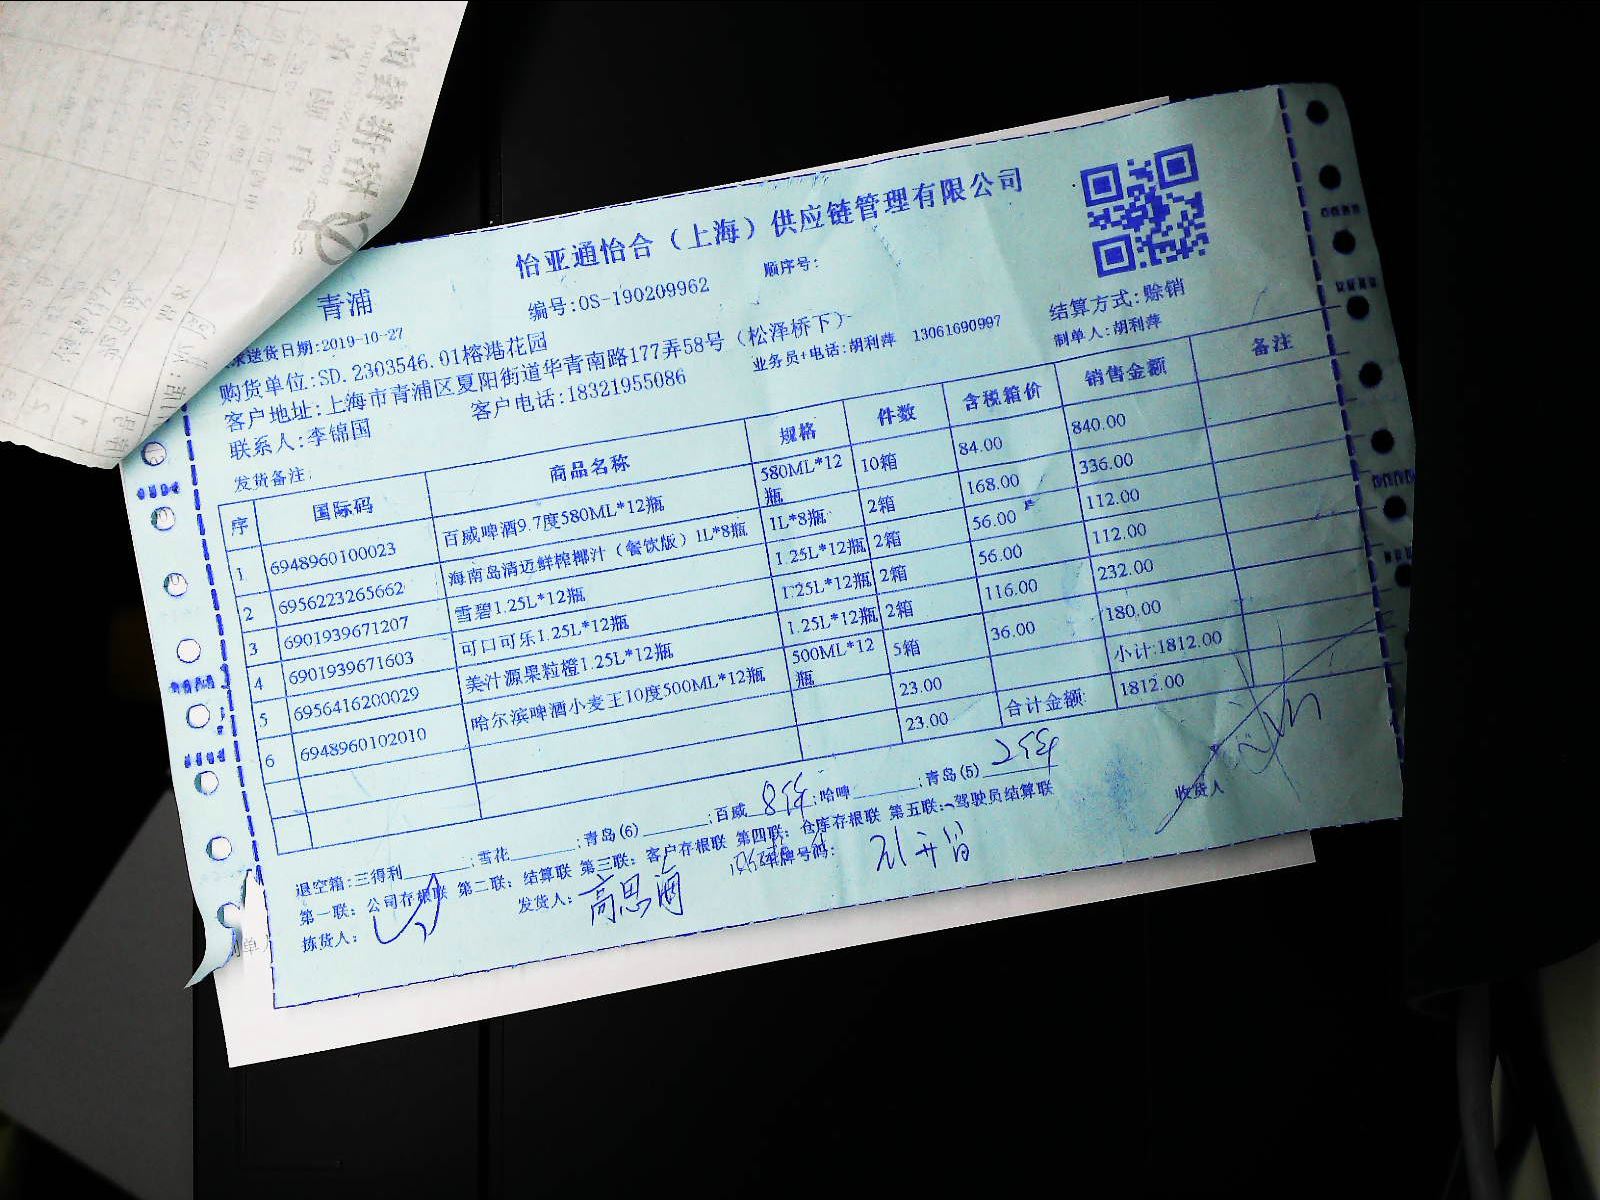 怡亚通怡合（上海）供应链管理有限公司
青浦
编号:OS-190209962
顺序号:
送货日期:2019-10-27
结算方式:赊销
购货单位:SD.2303546.01榕港花园
业务员+电话:胡利萍 13061690997
制单人:胡利萍
客户地址:上海市青浦区夏阳街道华青南路177弄58号（松泽桥下）
联系人:李锦国
客户电话:18321955086
发货备注:
序 国际码 商品名称 规格 件数 含税箱价 销售金额 备注
1 6948960100023 百威啤酒9.7度580ML*12瓶 580ML*12瓶 10箱 84.00 840.00
2 6956223265662 海南岛清迈鲜榨椰汁（餐饮版）1L*8瓶 1L*8瓶 2箱 168.00 336.00
3 6901939671207 雪碧1.25L*12瓶 1.25L*12瓶 2箱 56.00 112.00
4 6901939671603 可口可乐1.25L*12瓶 1.25L*12瓶 2箱 56.00 112.00
5 6956416200029 美汁源果粒橙1.25L*12瓶 1.25L*12瓶 2箱 116.00 232.00
6 6948960102010 哈尔滨啤酒小麦王10度500ML*12瓶 500ML*12瓶 5箱 36.00 180.00
23.00 小计:1812.00
23.00 合计金额: 1812.00
退空箱:三得利______;雪花______;青岛(6)______;百威______;哈啤______;青岛(5)______
第一联：公司存根联 第二联：结算联 第三联：客户存根联 第四联：仓库存根联 第五联：驾驶员结算联
拣货人:
发货人: 高思海
车牌号码:
收货人